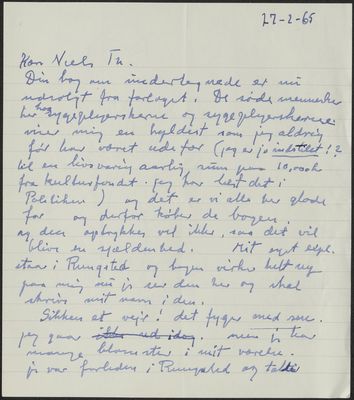 27-2-65
Kære Niels Th.
Din bog om undertegnede er nu
udsolgt fra forlaget. De søde mennesker
her hos sygeplejerskerne og sygeplejerskerne
viser mig en hyldest som jeg aldrig
før har været ude for (jeg er jo indstillet!?
til en livsvarig aarlig sum paa 10,000 k
fra kulturfondet. jeg har læst det i
Politiken) og det er vi alle her glade
for og derfor køber de bogen.
og den optrykkes vel ikke, saa det vil
blive en sjældenhed. Mit eget expl.
staar i Rungsted og bogen virker helt ny
paa mig nu jeg ser den her og skal
skrive mit navn i den.
Sikken et vejr! det fyger med sne.
jeg gaar ikke ud idag. men jeg har
mange blomster i mit værelse.
jeg var forleden i Rungsted og talte